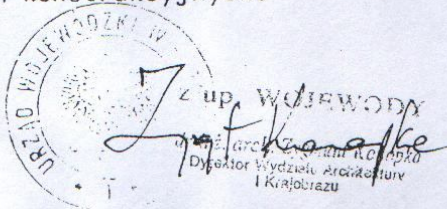 URZĄD WOJEWÓDZKI W
z up. WOJEWODY
mgr inż. arch. Zygmunt Konopka
Dyrektor Wydziału Architektury
i Krajobrazu